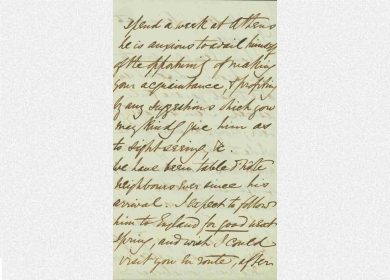 spend a week at Athens
he is anxious to avail himself
of the opportunity of making
your acquaintance & profiting
by any suggestions which you
may kindly give him as
to sight seeing, &c.
We have been table d'hôte
neighbours ever since his
arrival. I expect to follow
him to England for good next
Spring, and wish I could
visit you en route, after